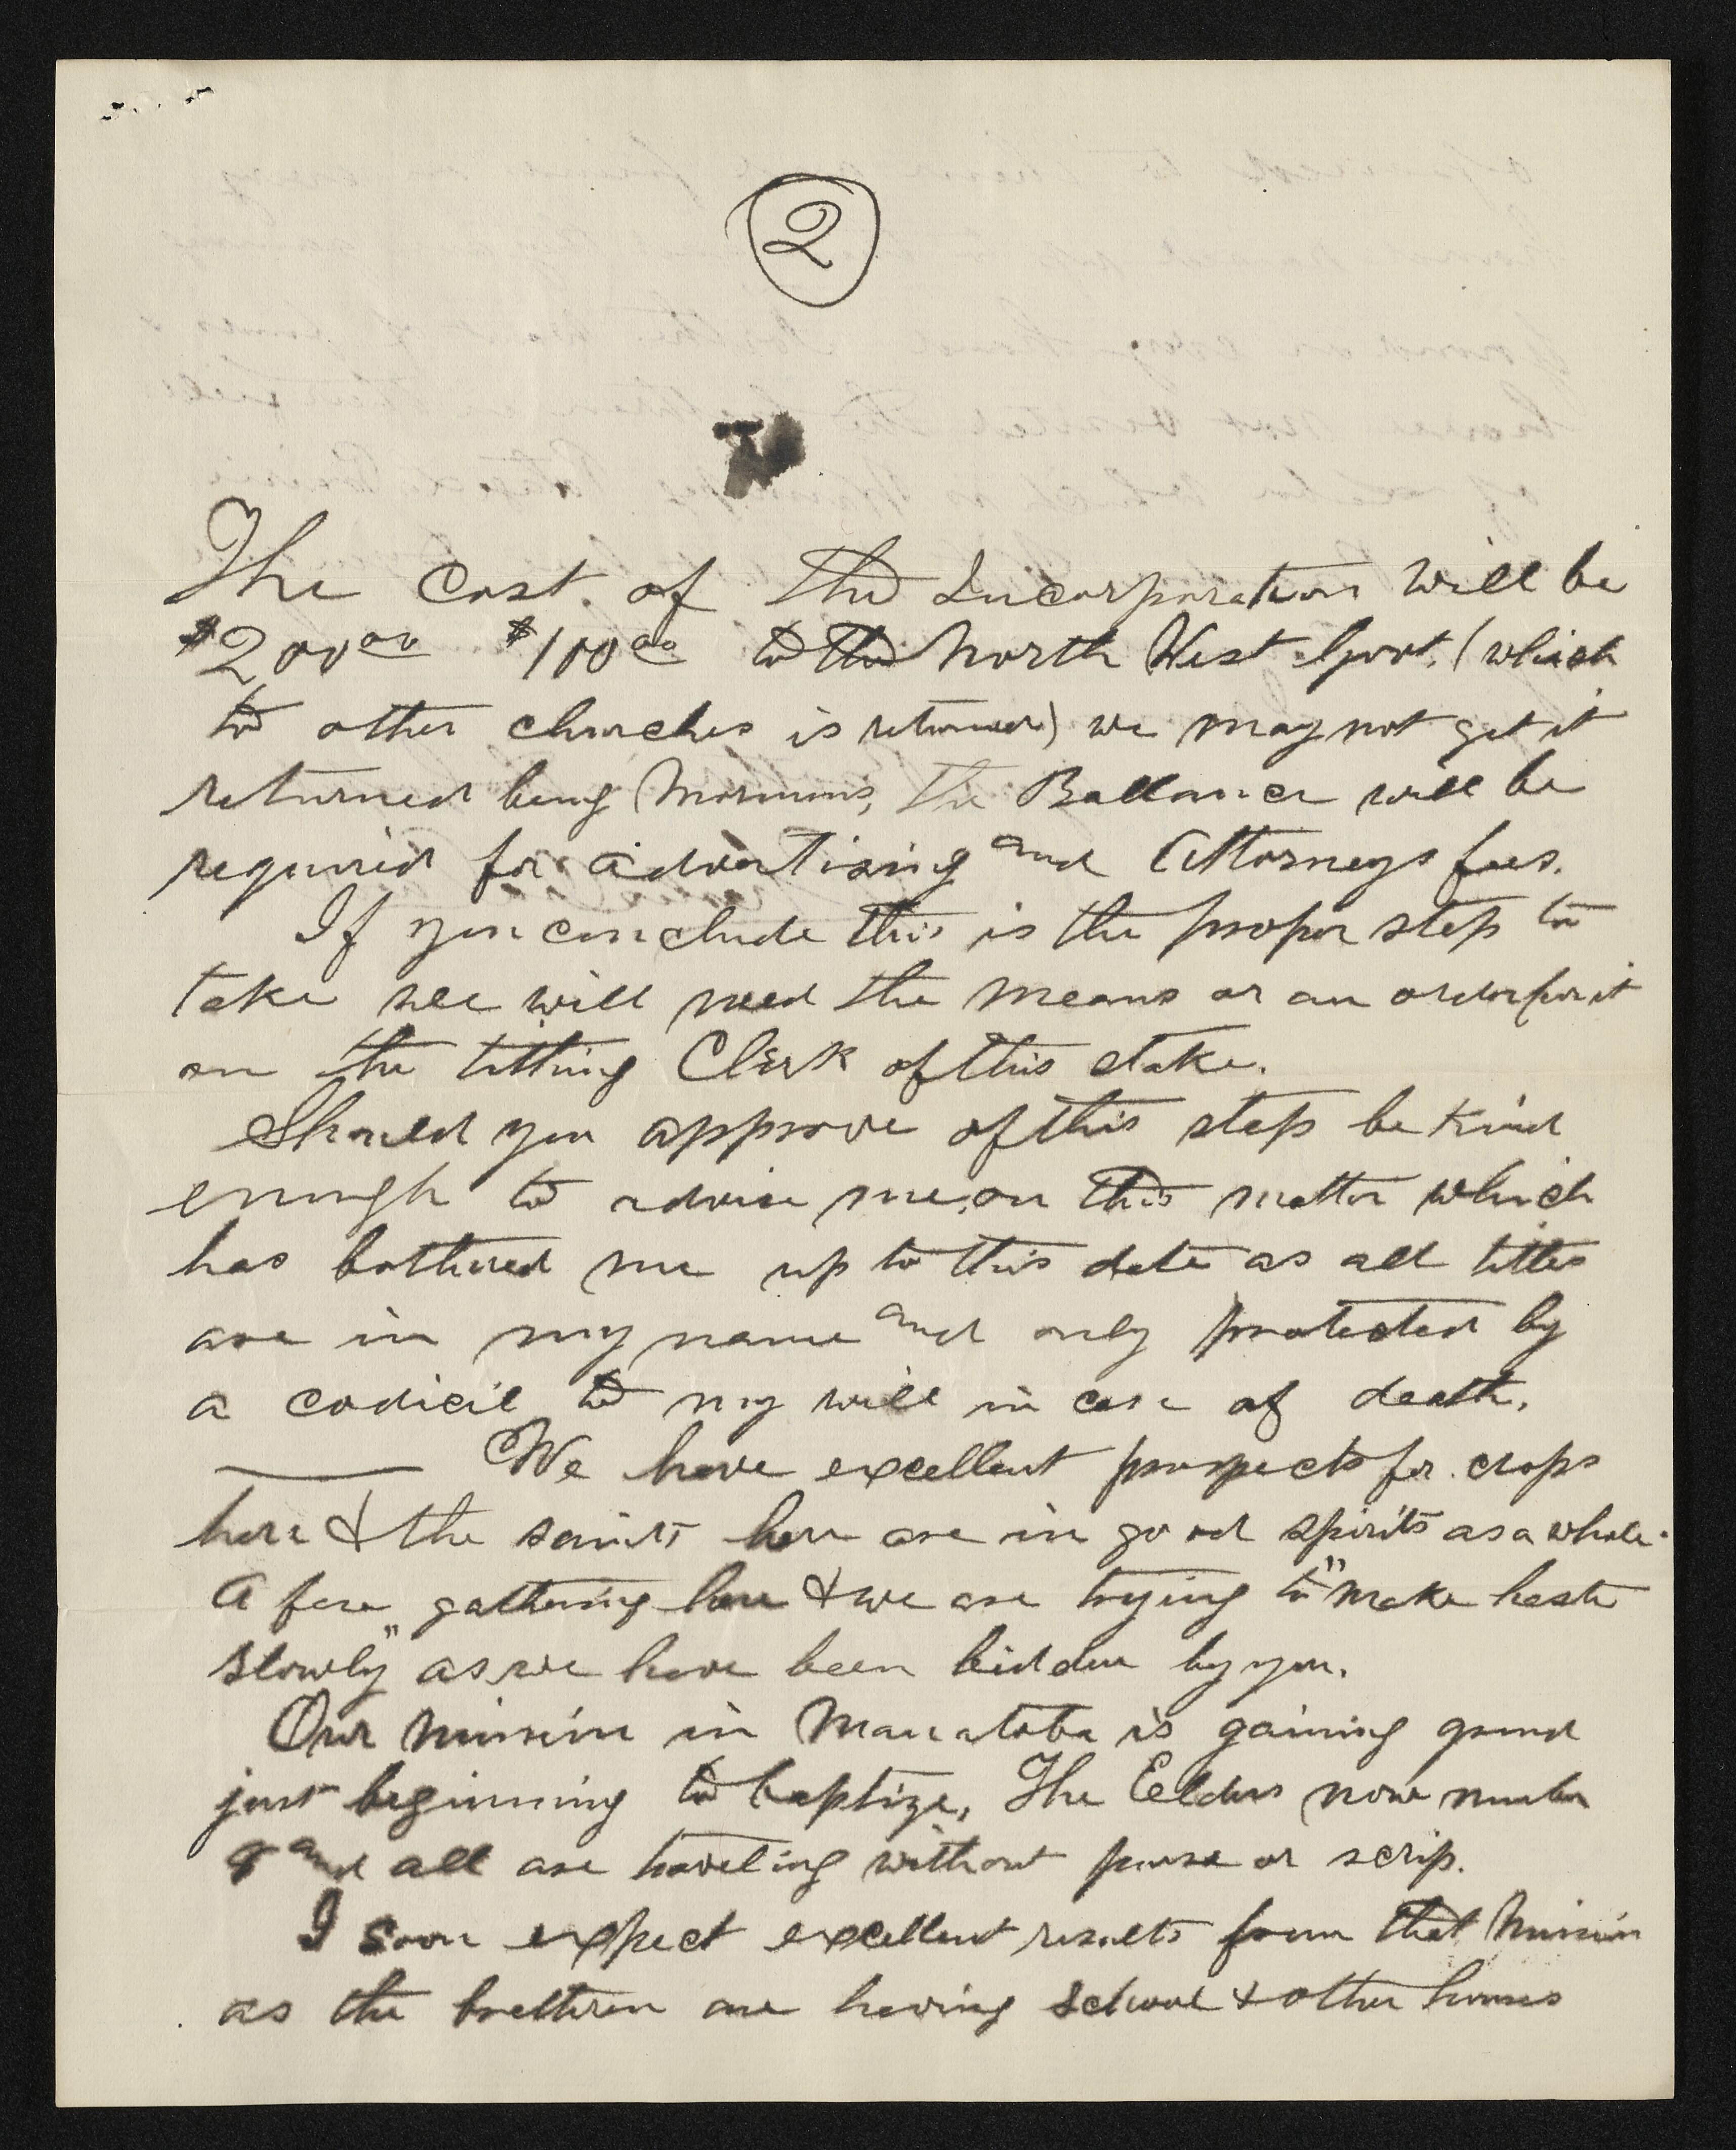 2
The Cost of the Incorporation will be
$200 00 $100 00 to the North West Govt. (which
to other churches is returned) we may not get it
returned being Mormons, the Ballance will be
required for advertising and Attorneys fees.
If you conclude this is the proper step to
take we will need the means or an order for it
on the tithing Clerk of this stake.
Should you approve of this step be kind
enough to advise me on this matter which
has bothered me up to this date as all titles
are in my name and only protected by
a codicil to my will in case of death.
We have excellent prospects for crops
here & the saints here are in good spirits as a whole.
A few gathering here & we are trying to "make haste
slowly" as we have been bidden by you.
Our mission in Manatoba is gaining ground
just beginning to baptize, The Eelders now number
8 and all are traveling without purse or scrip.
I soon expect excellent results from that Mission
as the brethren are having school & other houses